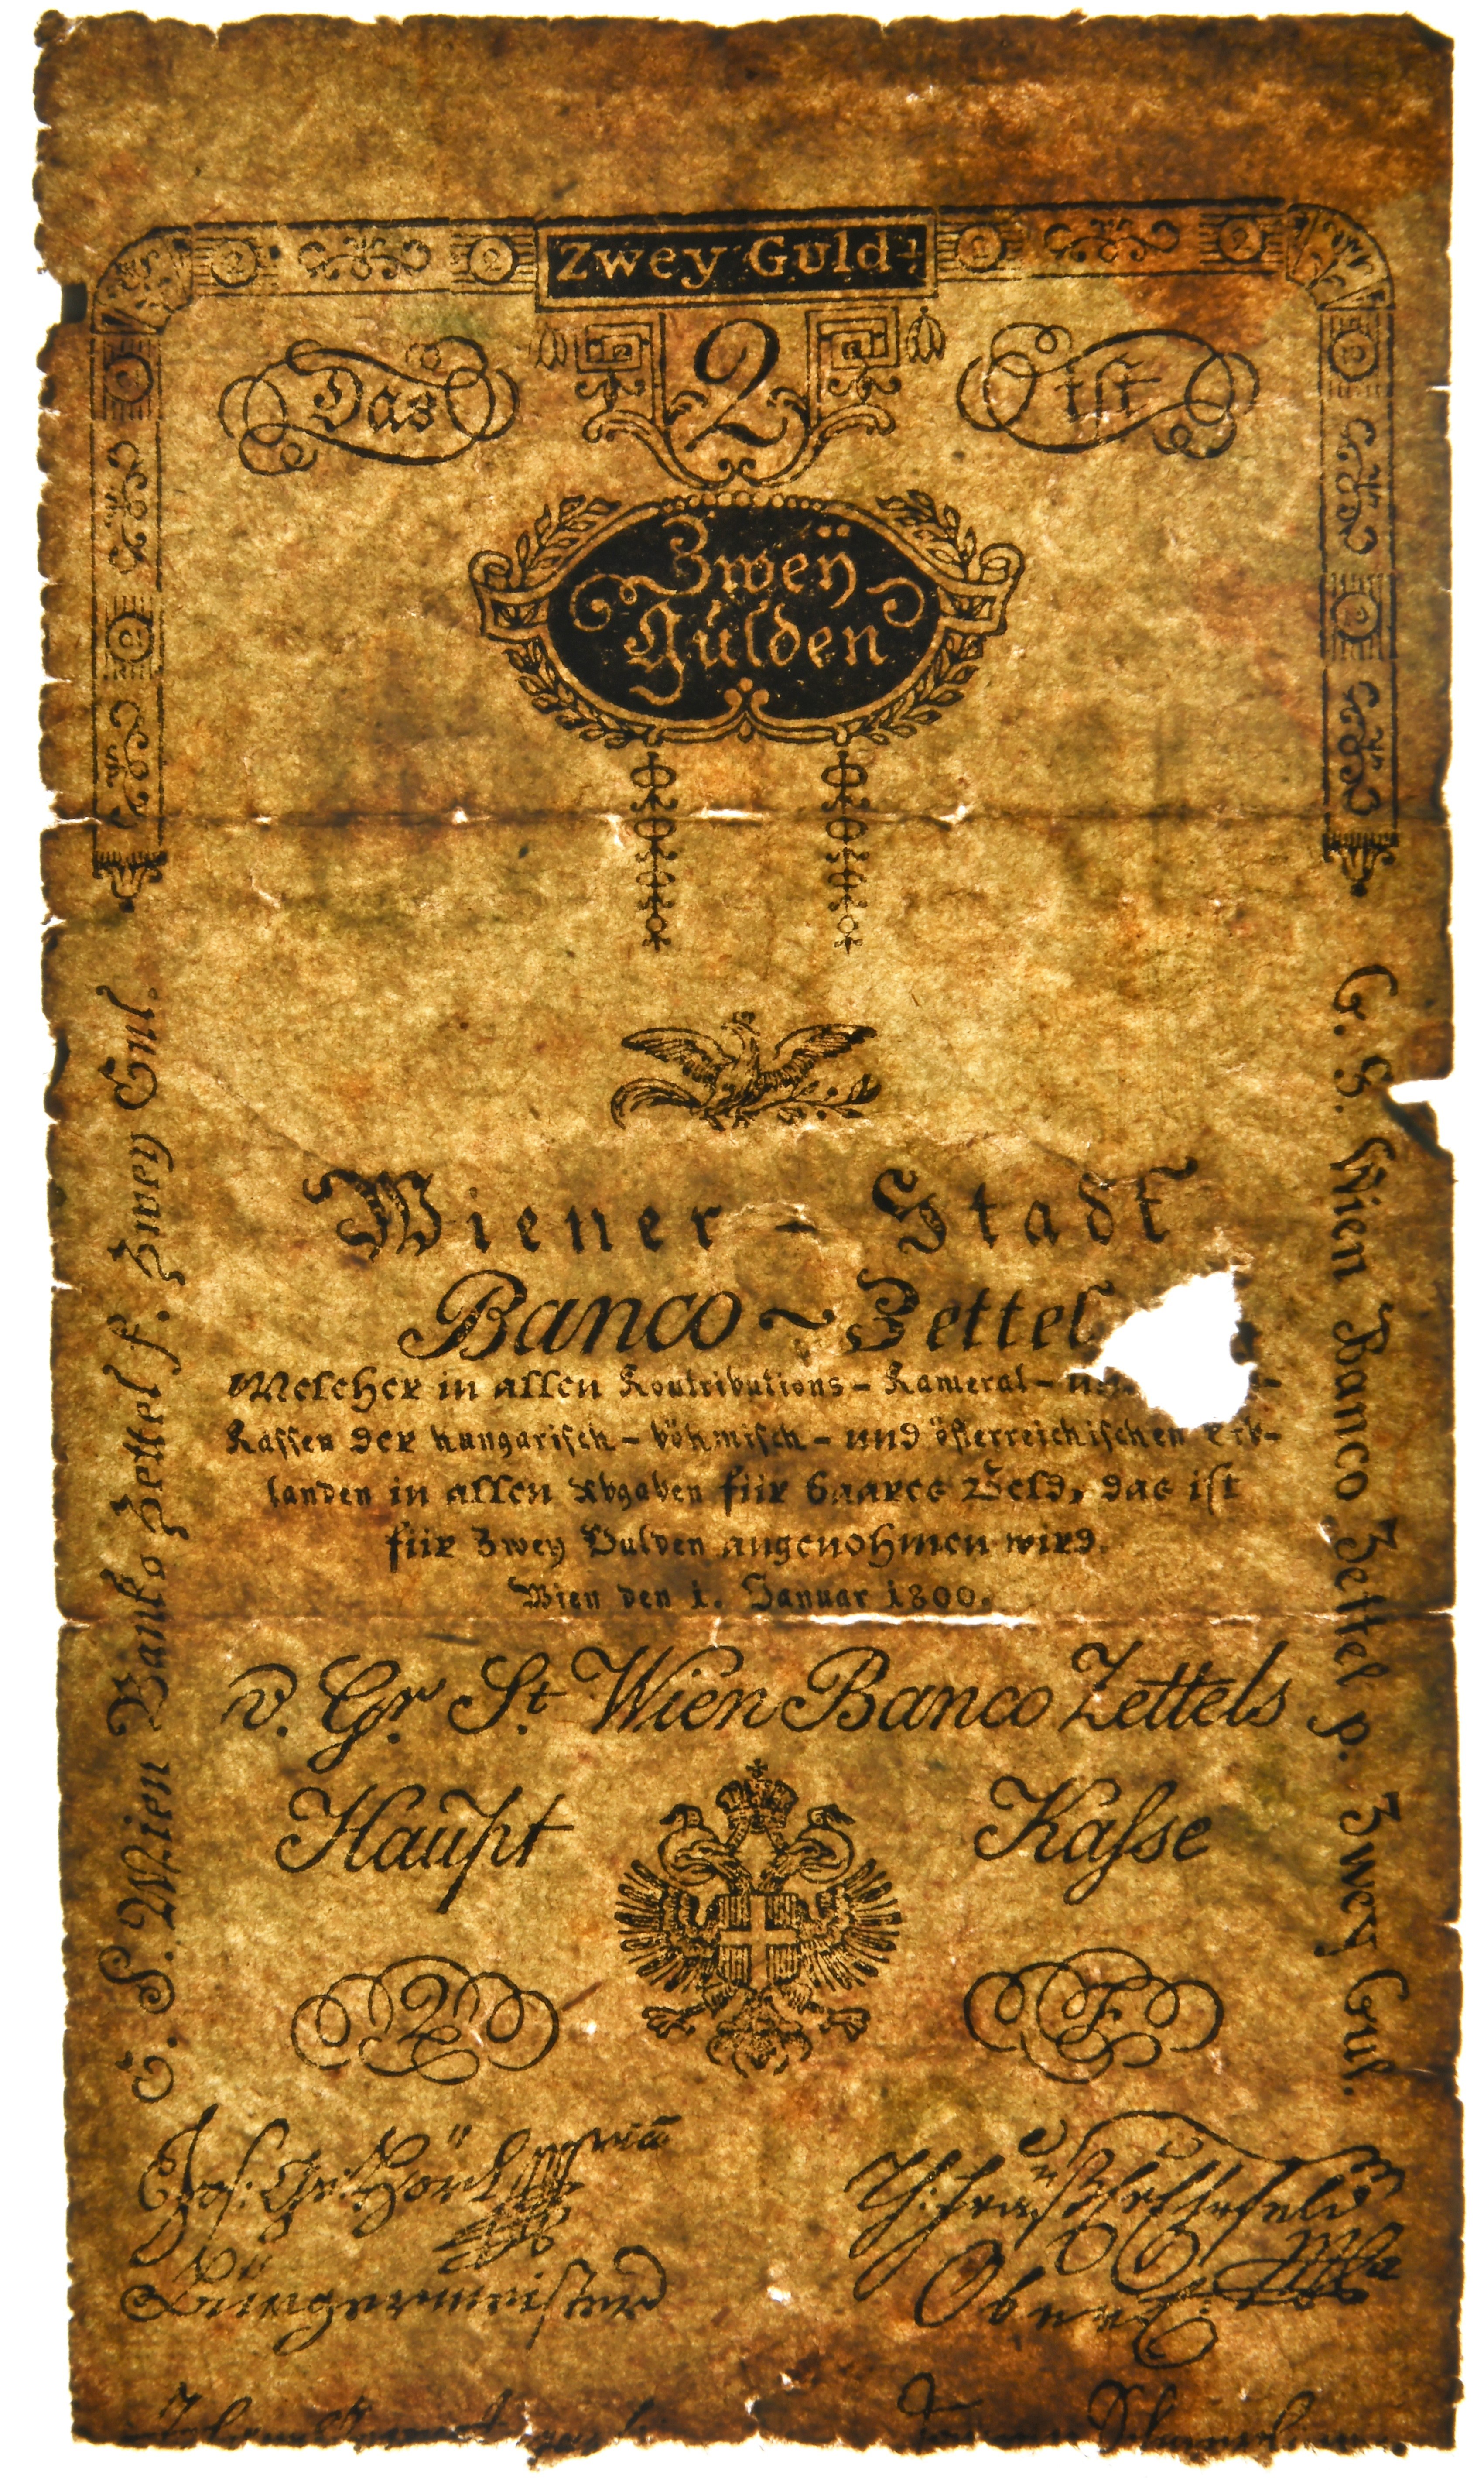 Zwey Guld:
Das 2 ist
Zweÿ
Gulden
Wiener - Stadt
Banco ~ Zettel
Welcher in allen Kontributions - Kameral -
Kassen der hungarisch - böhmisch - und österreichischen Erb-
landen in allen Abgaben für baares Geld, das ist
für Zwey Gulden angenohmen wird.
Wien den 1. Januar 1800.
v. Gr. St. Wien Banco Zettels
Haupt Kasse
2 F
Bürgermeister
Ober
G. S. Wien Banko Zettel f. Zwey Gul.
G. S. Wien Banco Zettel p. Zwey Gul.